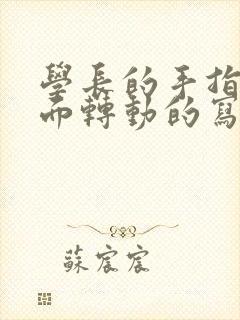 學長的手指
而轉動的寫
蘇宸宸